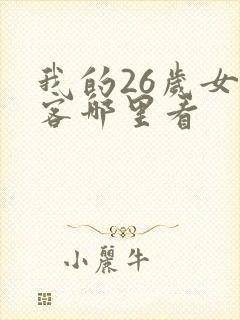 我的26歲女
客哪里看
小麗牛